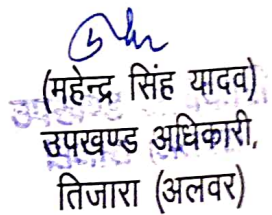 (महेन्द्र सिंह यादव)
उपखण्ड अधिकारी,
तिजारा (अलवर)